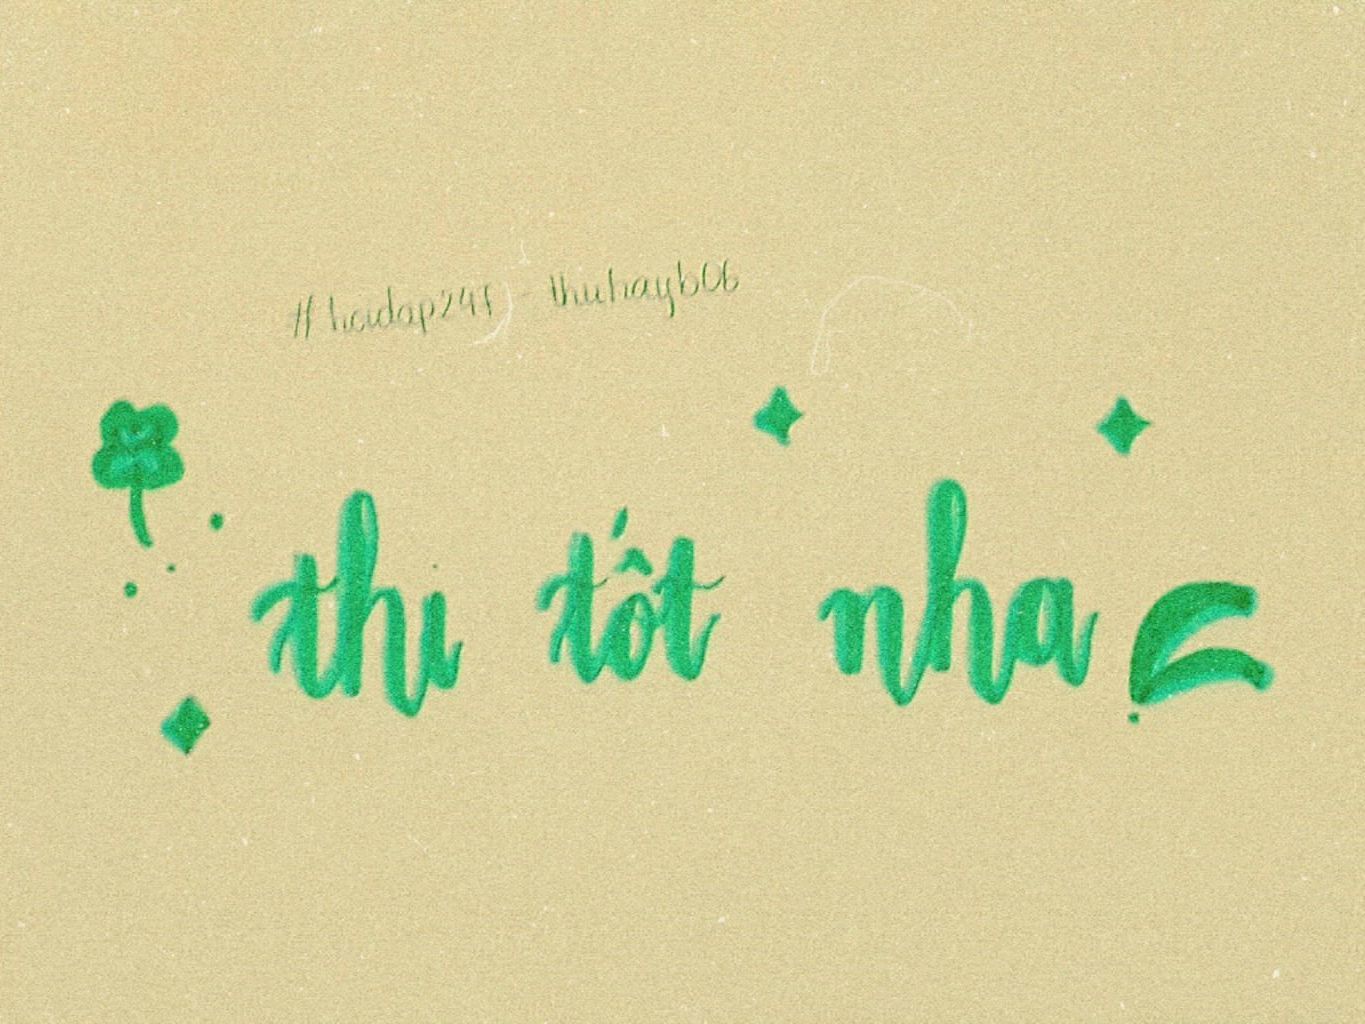 #hoidap247 - thuhayb06
thi tốt nha